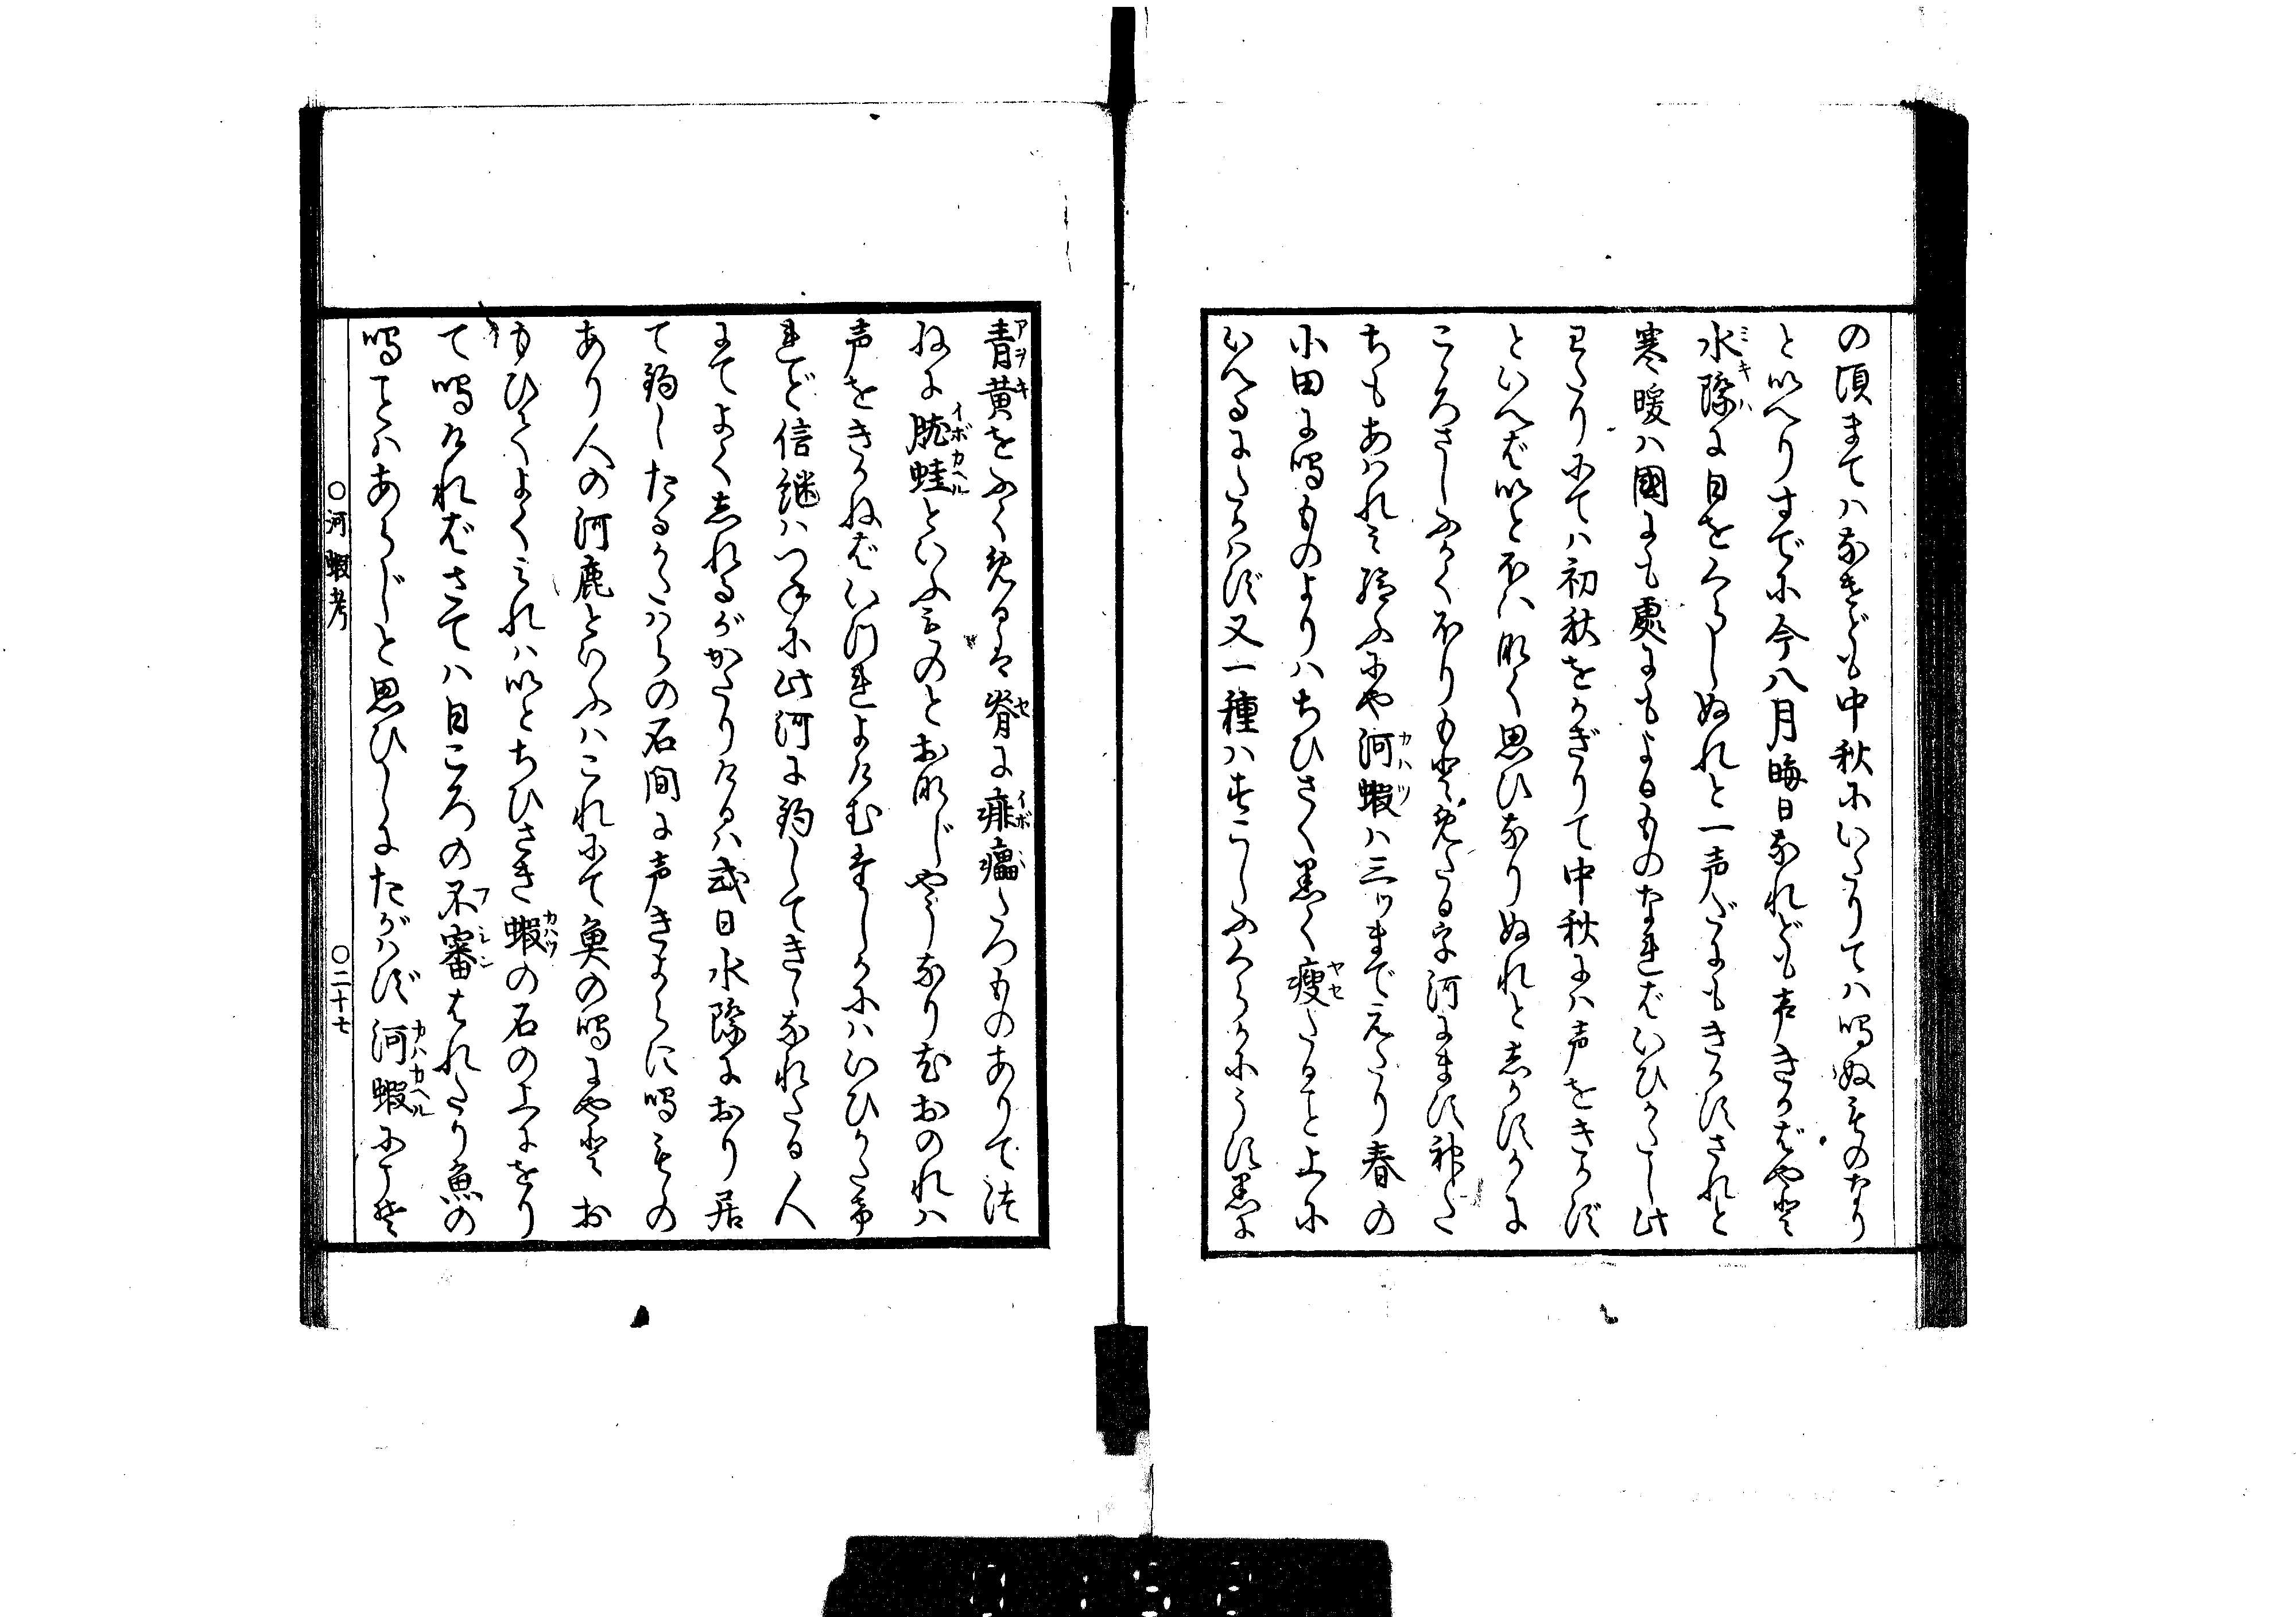 の頃まてハなきども中秋にいたりてハ鳴ぬものなり
といへりすでに今八月晦日なれども声きかばやと
水際に目をくらしぬれと一声だにもきかすされと
寒暖ハ國にも處にもよるものなればいひかたし此
わたりにてハ初秋をかぎりて中秋にハ声をきかず
といへばいとほい那く思ひなりぬれとしかすかに
こゝろさしふかくほりもとめたる字河にます神た
ちもあはれと給ふにや河蝦ハ三ツまでえたり春の
小田に鳴ものよりハちひさく黒く痩たること上に
いへるにたかはず又一種ハすこしふくらかにうす黒に
青黄をふくめるは脊に痱㿔たつものありて法
ねに肬蛙といふものとお那じやうなりそおのれハ
声をきかねばいつれよけむたしかにハいひかたけ
れど信継ハつねに此河に釣してきゝなれたる人
にてよくしれるがかたりけるハ或日水際におり居
て釣したるかたハらの石間に声きよらに鳴もの
あり人の河鹿といふハこれにて魚の鳴にやとお
もひてよくみれハいとちひさき蝦の石の上にをり
て鳴けれバさてハ日ころの不審はれたり魚の
鳴ことハあらじと思ひしにたがハず河蝦にこそ
○河蝦考
○二十七